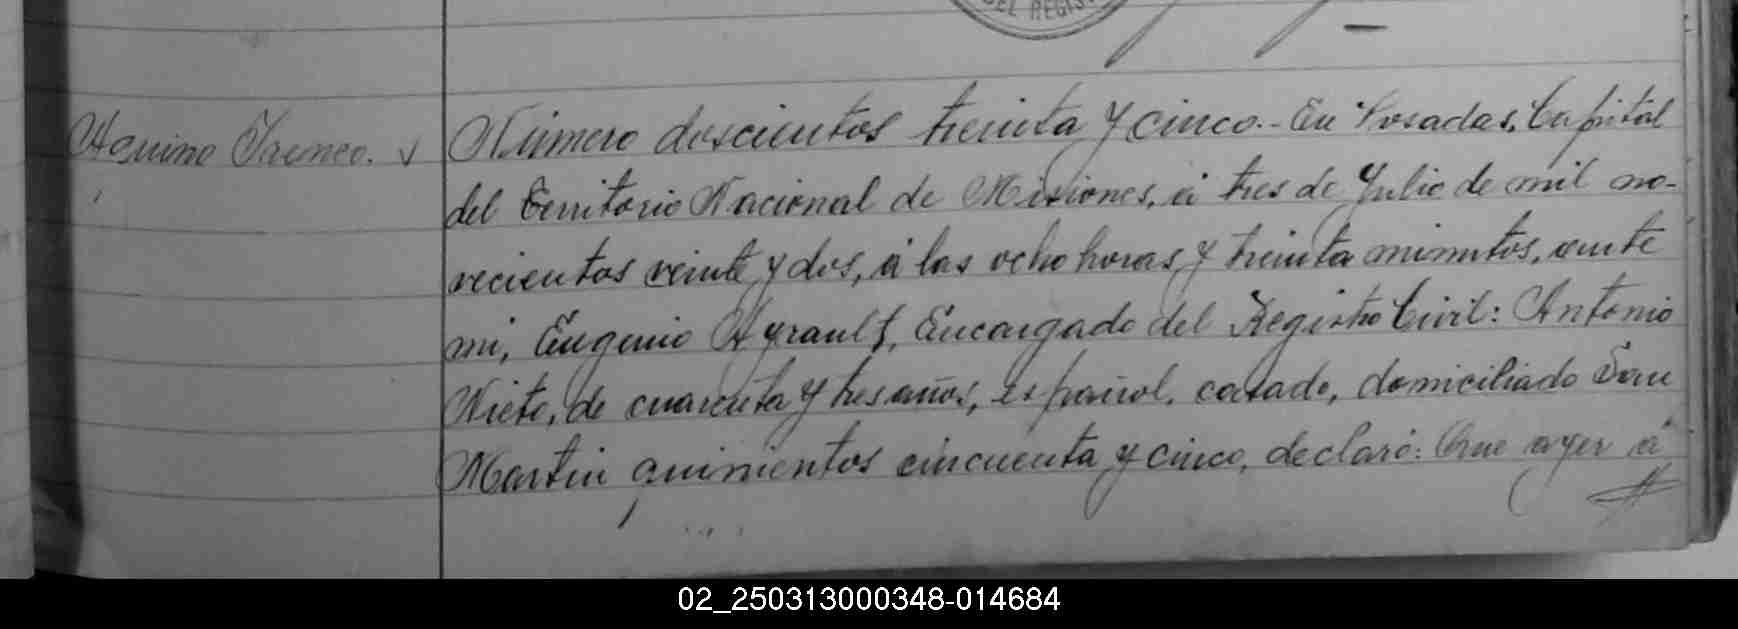 DEL REGIS
Aquino Ireneo. v
Número doscientos treinta y cinco.- En Posadas, Capital
del Territorio Nacional de Misiones, á tres de Julio de mil no-
vecientos veinte y dos, á las ocho horas y treinta minutos, ante
mi, Eugenio Ayrault, Encargado del Registro Civil: Antonio
Nieto, de cuarenta y tres años, español, casado, domiciliado San
Martin quinientos cincuenta y cinco, declaró: Que ayer á
02_250313000348-014684